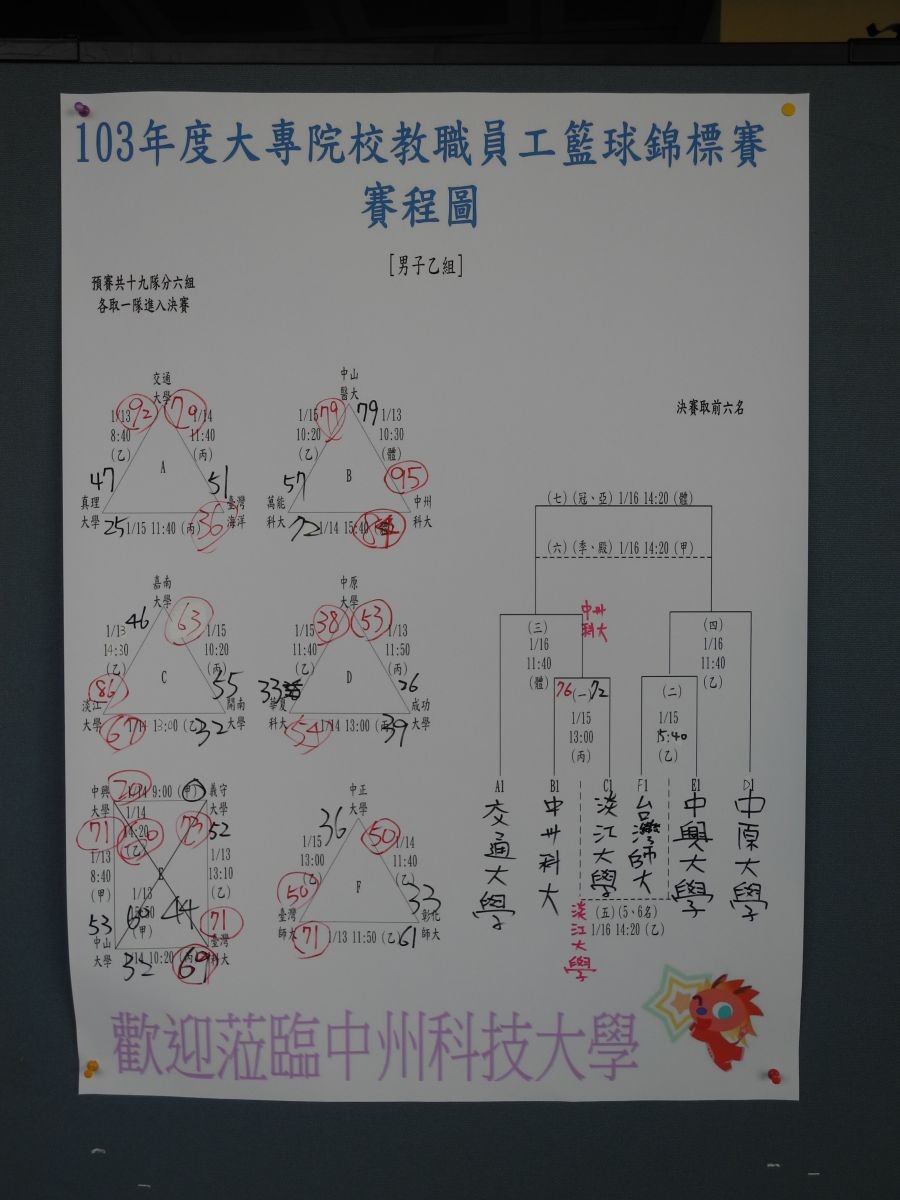 103年度大專院校教職員工籃球錦標賽
賽程圖
[男子乙組]
預賽共十九隊分六組
各取一隊進入決賽
決賽取前六名
交通
大學
1/13
8:40
(乙)
92
79
1/14
11:40
(丙)
A
47
51
真理
大學
臺灣
海洋
25
1/15 11:40 (丙)
36
中山
醫大
1/15
10:20
(乙)
79
79
1/13
10:30
(體)
B
57
95
萬能
科大
中州
科大
72
1/14 15:40
嘉南
大學
46
63
1/13
14:30
(乙)
1/15
10:20
(丙)
C
86
55
淡江
大學
開南
大學
67
1/14 13:00 (乙)
32
中原
大學
1/15
11:40
(乙)
38
53
1/13
11:50
(丙)
D
33
26
華夏
科大
成功
大學
54
1/14 13:00
39
中興
大學
1/14 9:00 (甲)
義守
大學
71
1/14
14:20
(乙)
60
73
52
1/13
8:40
(甲)
E
1/13
13:10
(乙)
1/13
(甲)
44
53
71
中山
大學
臺灣
科大
32
10:20
69
中正
大學
36
50
1/15
13:00
(乙)
1/14
11:40
(乙)
F
50
33
臺灣
師大
彰化
師大
71
1/13 11:50 (乙)
61
(七) (冠、亞) 1/16 14:20 (體)
(六) (季、殿) 1/16 14:20 (甲)
中州
科大
(三)
1/16
11:40
(體)
(四)
1/16
11:40
(乙)
76 (一 72
1/15
13:00
(丙)
(二)
1/15
15:40
(乙)
A1
B1
C1
F1
E1
D1
交通大學
中州科大
淡江大學
台灣師大
中興大學
中原大學
(五) (5、6名)
1/16 14:20 (乙)
淡江大學
歡迎蒞臨中州科技大學